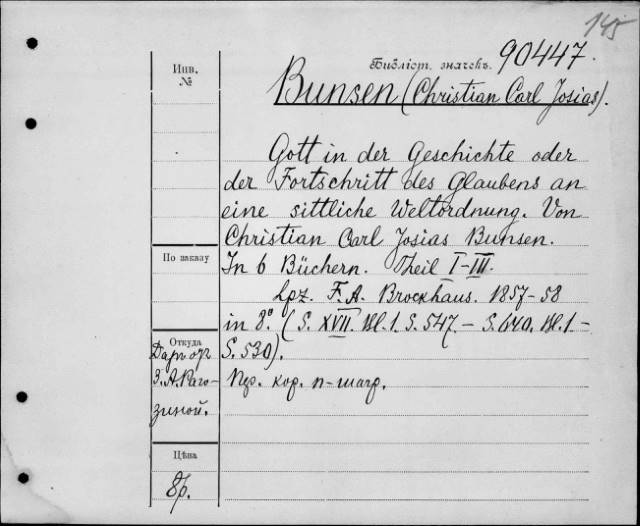 145
Инв.
№
Библіот. значекъ. 90447.
Bunsen (Christian Carl Josias).
Gott in der Geschichte oder
der Fortschritt des Glaubens an
eine sittliche Weltordnung. Von
Christian Carl Josias Bunsen.
По заказу
In 6 Büchern. Theil I-III.
Lpz. F. A. Brockhaus. 1857-58
in 8.° (S. XVII. Bl. 1. S. 547. – S. 640. Bl. 1 –
S. 530).
Откуда
Даръ отъ
З. А. Раго-
зиной.
Пер. кор. п-шагр.
Цѣна
8р.